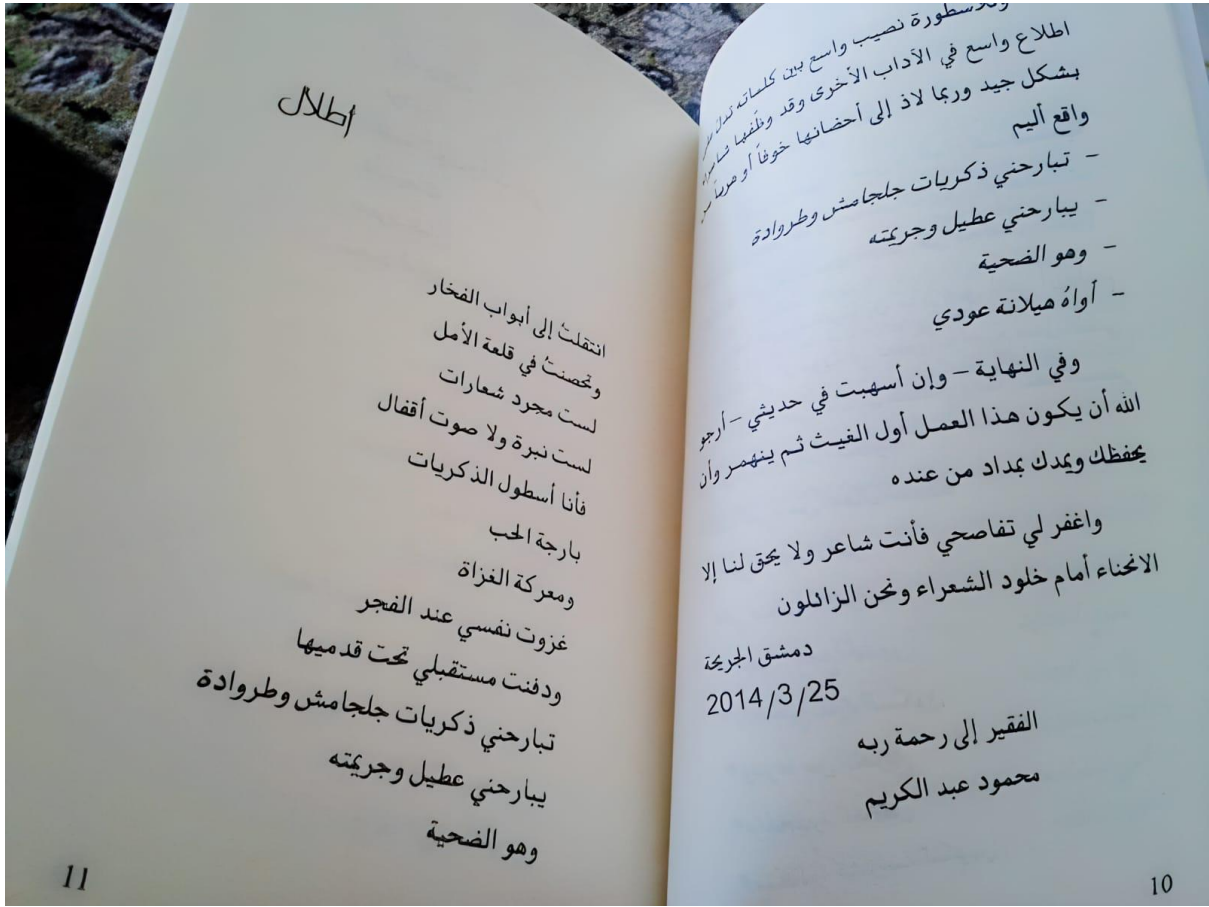 وللأسطورة نصيب واسع بين كلماته تدل على
اطلاع واسع في الآداب الأخرى وقد وظّفها شاعرنا
بشكل جيد وربما لاذ إلى أحضانها خوفاً أو هرباً من
واقع أليم
- تبارحني ذكريات جلجامش وطروادة
- يبارحني عطيل وجريمته
- وهو الضحية
- أواهُ هيلانة عودي
وفي النهاية – وإن أسهبت في حديثي – أرجو
الله أن يكون هذا العمل أول الغيث ثم ينهمر وأن
يحفظك ويمدك بمداد من عنده
واغفر لي تفاصحي فأنت شاعر ولا يحق لنا إلا
الانحناء أمام خلود الشعراء ونحن الزائلون
دمشق الجريحة
2014/3/25
الفقير إلى رحمة ربه
محمود عبد الكريم
10
أطلال
انتقلتُ إلى أبواب الفخار
وتحصنتُ في قلعة الأمل
لست مجرد شعارات
لست نبرة ولا صوت أقفال
فأنا أسطول الذكريات
بارجة الحب
ومعركة الغزاة
غزوت نفسي عند الفجر
ودفنت مستقبلي تحت قدميها
تبارحني ذكريات جلجامش وطروادة
يبارحني عطيل وجريمته
وهو الضحية
11